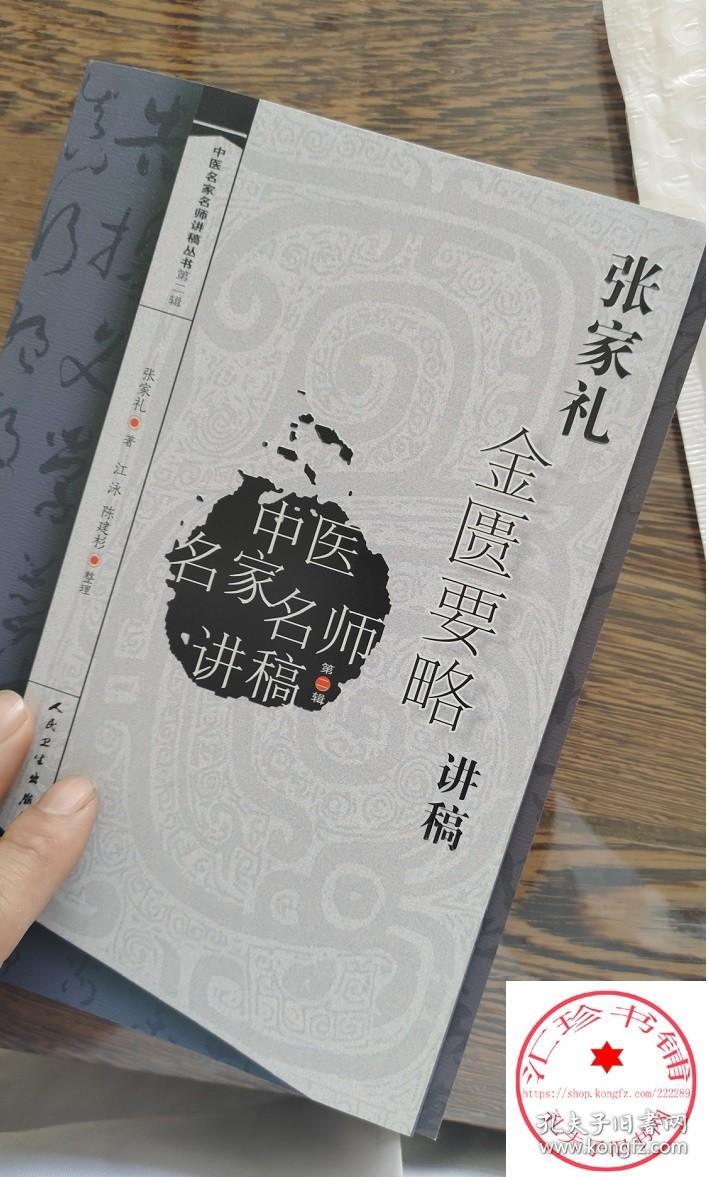 中医名家名师讲稿丛书第二辑
张家礼 著 江泳 陈建杉 整理
人民卫生出版
张家礼
金匮要略
讲稿
中医
名家名师
讲稿
第二辑
汇珍书铺
https://shop.kongfz.com/222289
孔夫子旧书网
www.kongfz.com